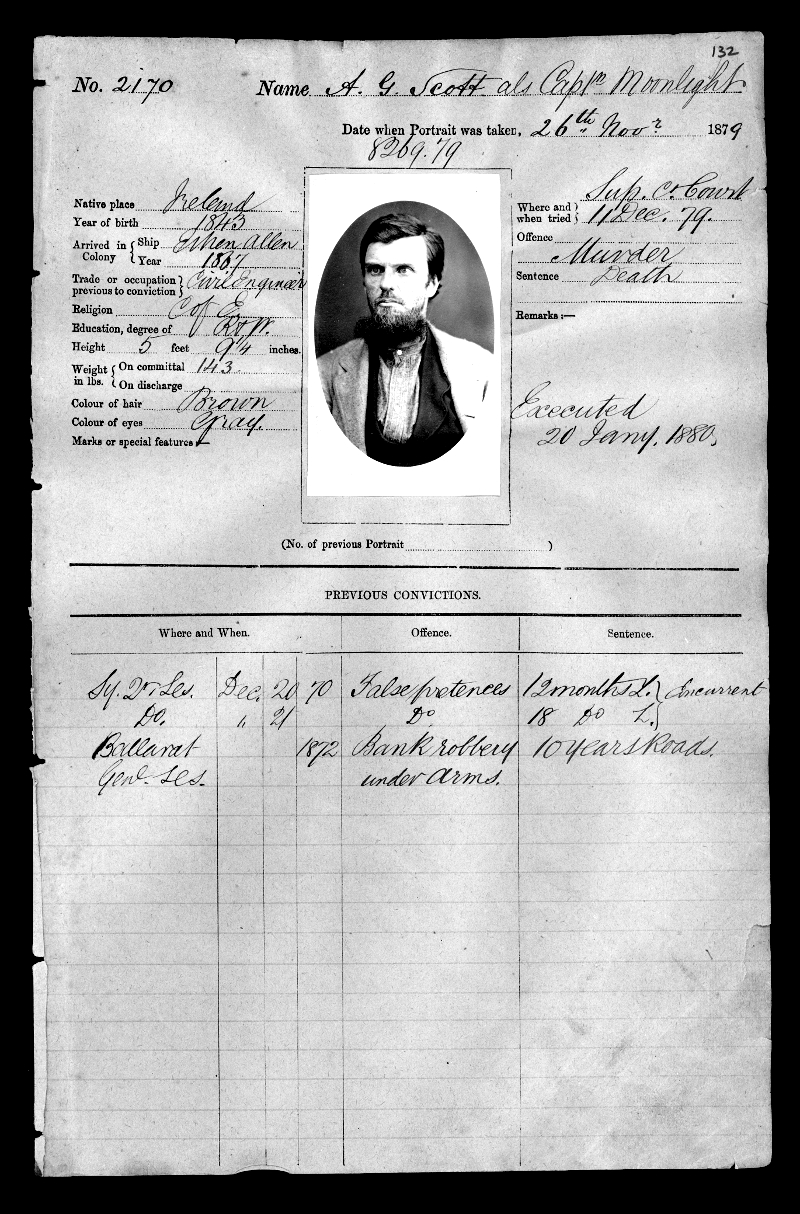 132
No. 2170 Name A. G. Scott als Captn Moonlight
Date when Portrait was taken, 26th Novr 1879
8269.79
Native place Ireland
Year of birth 1843
Arrived in Colony { Ship Ethen Allen
Year 1867
Trade or occupation previous to conviction } Civil Engineer
Religion C of E
Education, degree of R & W.
Height 5 feet 9¼ inches.
Weight in lbs. { On committal 143
On discharge
Colour of hair Brown
Colour of eyes Gray.
Marks or special features:—
Where and when tried } Sup. Ct Court
11 Dec. 79.
Offence
Murder
Sentence Death
Remarks:—
Executed
20 Jany. 1880.
(No. of previous Portrait )
PREVIOUS CONVICTIONS.
Where and When. Offence. Sentence.
Sy. Qr Ses. Dec. 20 70 False pretences 12 months L. } Concurrent
Do. " 21 Do 18 Do L. }
Ballarat 1872 Bank robbery 10 years Roads.
Genl. Ses. under arms.